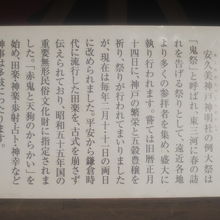 安久美神戸神明社の例大祭は
「鬼祭」と呼ばれ、東三河に春の訪
れを告げる祭りとして、遠近各地
より多くの参拝者を集め、盛大に
執り行われます。嘗ては旧暦正月
十四日に、神戸の繁栄と五穀豊穣を
祈り、祭りが行われてまいりました
が、現在は毎年二月十・十一日の両日
に改められました。平安から鎌倉時
代に流行した田楽を、古式を崩さず
伝えられており、昭和五十五年国の
重要無形民俗文化財に指定されま
した。「赤鬼と天狗のからかい」を
始め、田楽・神楽・歩射・占卜・神幸など
神事は多岐にわたります。